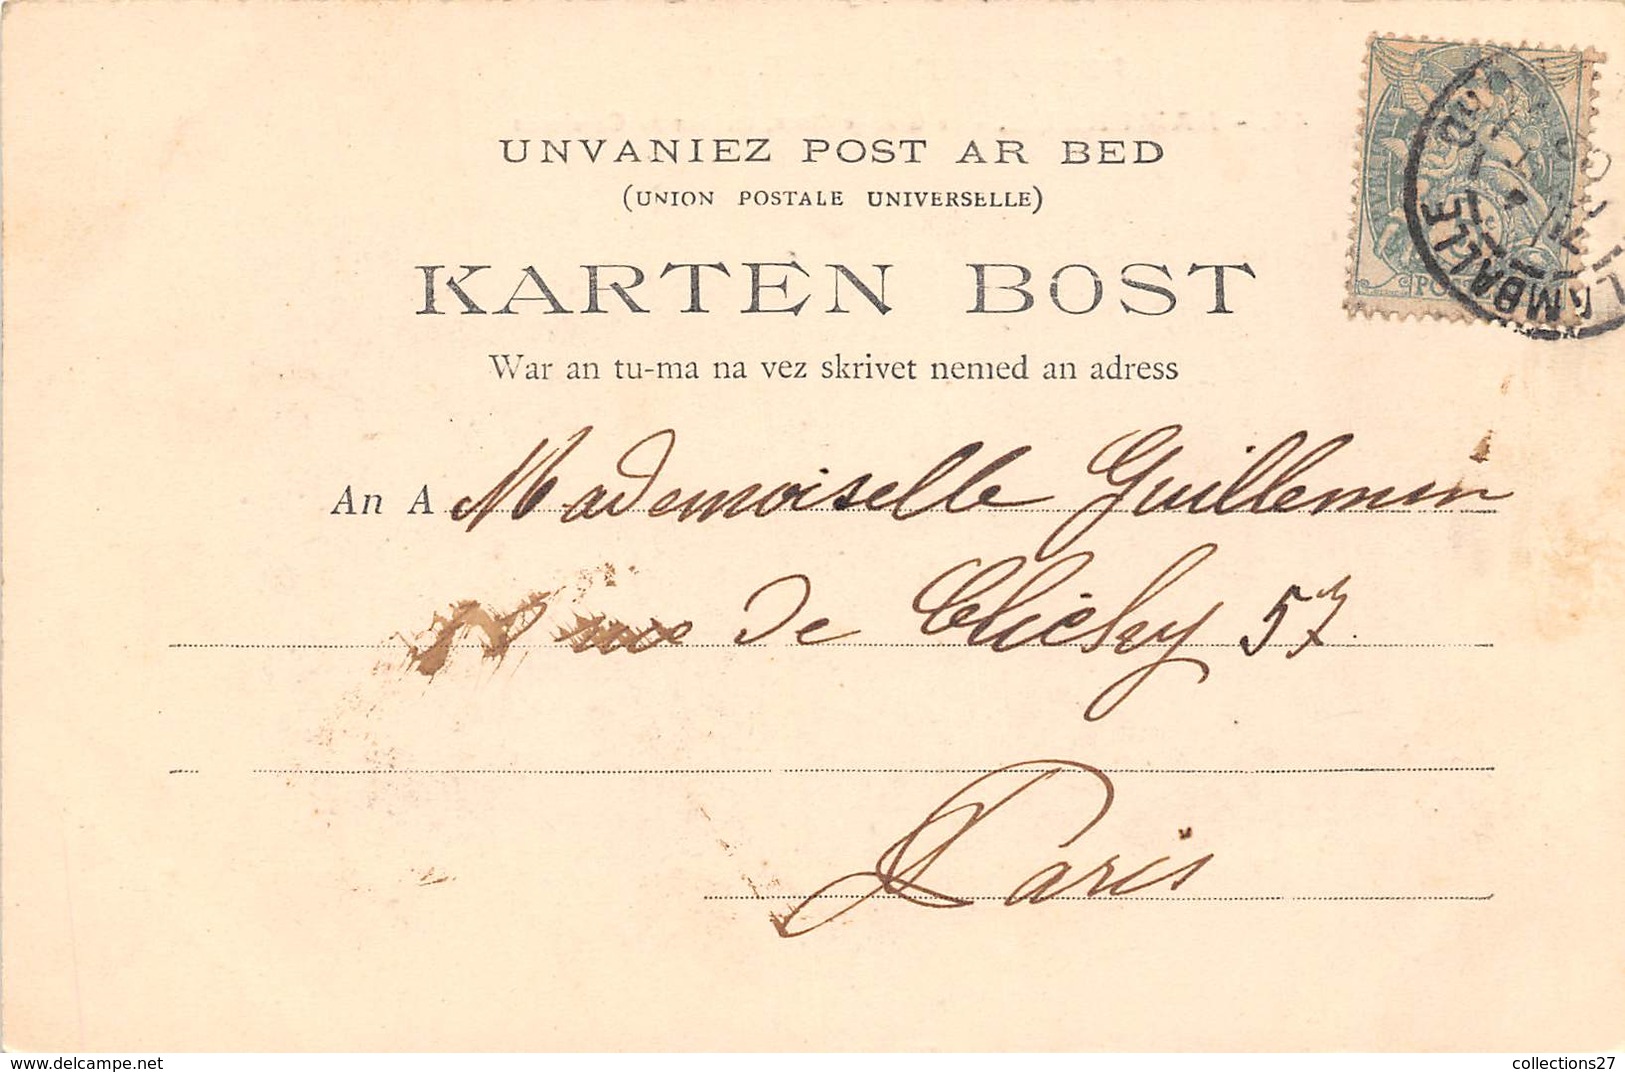 UNVANIEZ POST AR BED
(UNION POSTALE UNIVERSELLE)
KARTEN BOST
War an tu-ma na vez skrivet nemed an adress
An A Mademoiselle Guillemin
rue de Clichy 57
Paris
LAMBALLE
POSTES
www.delcampe.net
collections27